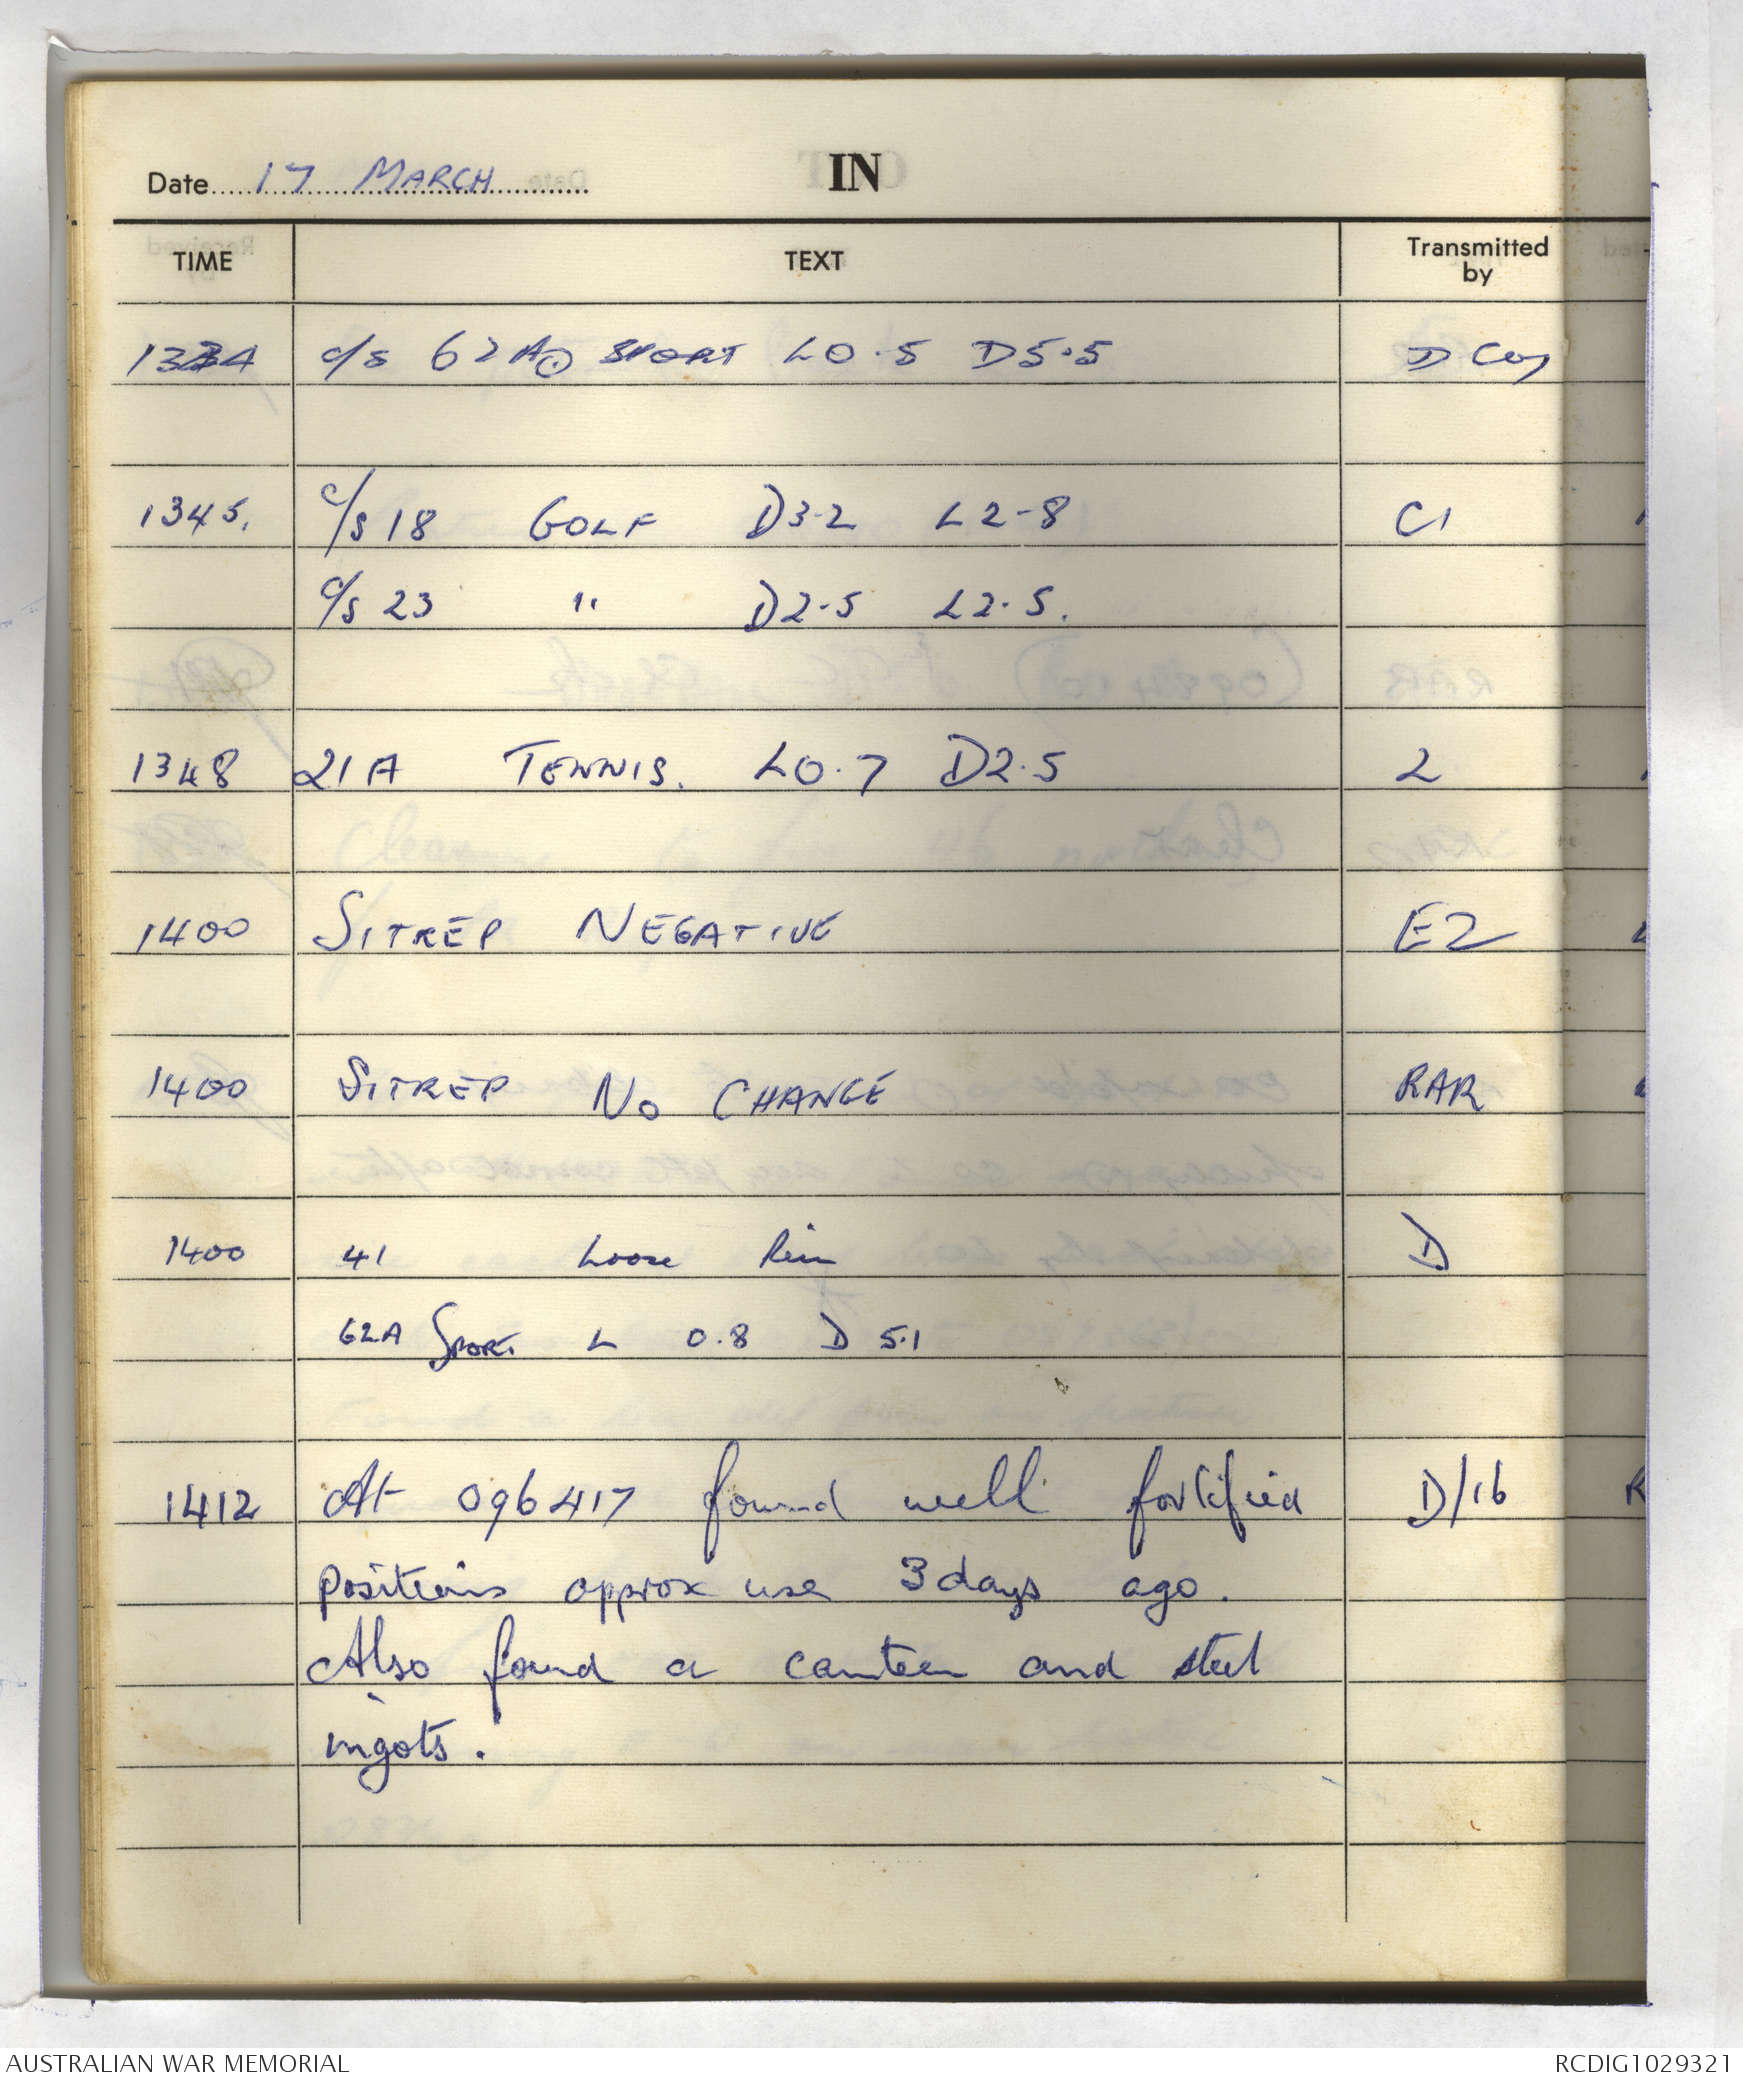 Date 17 MARCH IN
TIME TEXT Transmitted by
1334 c/s 62A SPORT L0.5 D5.5 D Coy
1345. c/s 18 GOLF D3.2 L2-8 C1
c/s 23 " D2.5 L2.5.
1348 21A TENNIS. L0.7 D2.5 2
1400 SITREP NEGATIVE E2
1400 SITREP NO CHANGE RAR
1400 41 Loose Rein D
62A SPORT. L 0.8 D 5.1
1412 At 096417 found well fortified D/16
positions approx use 3 days ago.
Also found a canteen and steel
ingots.
AUSTRALIAN WAR MEMORIAL RCDIG1029321